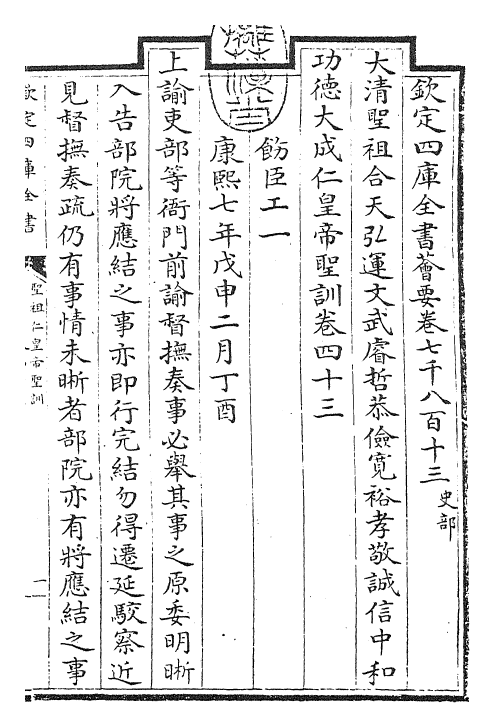 欽定四庫全書薈要卷七千八百十三 史部
大清聖祖合天弘運文武睿哲恭儉寬裕孝敬誠信中和
功德大成仁皇帝聖訓卷四十三
飭臣工一
康熙七年戊申二月丁酉
上諭吏部等衙門前諭督撫奏事必舉其事之原委明晰
入告部院將應結之事亦即行完結勿得遷延駮察近
見督撫奏疏仍有事情未晰者部院亦有將應結之事
欽定四庫全書
聖祖仁皇帝聖訓
一